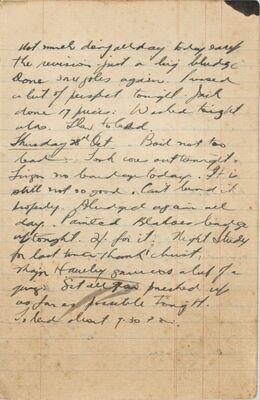 Not much doing all day today except
the revision just a big bludge
Done angles again. Missed
a lot of perspex tonight. Jack
done 17 pieces. Washed tonight
also. Then to bed.
Thursday 28th Oct Boil not too
bad. Took core out tonight.
Finger no bandage today. It is
still not so good. Can't bend it
properly. Bludged again all
day. Painted
off tonight. 2/- for it. Night Study
for last time thank christ.
Major Hawley gave us a lot of
. Got all gear packed up
as far as possible tonight.
To bed about 9.30 P.M.